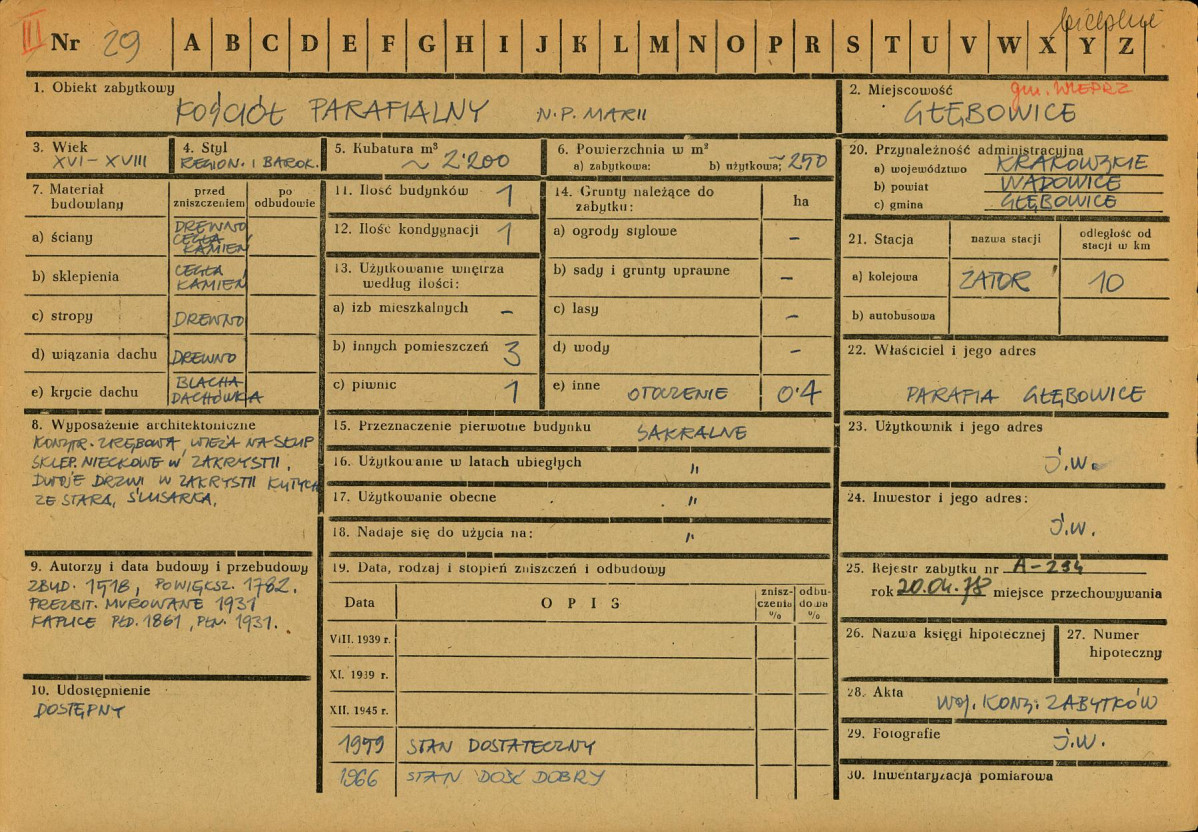 III Nr 29 A B C D E F G H I J K L M N O P R S T U V W X Y Z
bielskie
1. Obiekt zabytkowy
KOŚCIÓŁ PARAFIALNY N.P. MARII
2. Miejscowość
gm. WIEPRZ
GŁĘBOWICE
3. Wiek
XVI – XVIII
4. Styl
REGION. I BAROK.
5. Kubatura m³
~ 2.200
6. Powierzchnia w m²
a) zabytkowa: b) użytkowa: ~250
20. Przynależność administracyjna
a) województwo KRAKOWSKIE
b) powiat WADOWICE
c) gmina GŁĘBOWICE
7. Materiał budowlany
przed zniszczeniem
po odbudowie
a) ściany DREWNO CEGŁA KAMIEŃ
b) sklepienia CEGŁA KAMIEŃ
c) stropy DREWNO
d) wiązania dachu DREWNO
e) krycie dachu BLACHA DACHÓWKA
8. Wyposażenie architektoniczne
KONSTR. ZRĘBOWA, WIEŻA NA SŁUP
SKLEP. NIECKOWE W ZAKRYSTII,
DWOJE DRZWI W ZAKRYSTII KUTYCH
ZE STARĄ, ŚLUSARKĄ.
9. Autorzy i data budowy i przebudowy
ZBUD. 1518, POWIĘKSZ. 1782.
PREZBIT. MUROWANE 1931
KAPLICE PŁD. 1861, PŁN. 1931.
10. Udostępnienie
DOSTĘPNY
11. Ilość budynków 1
12. Ilość kondygnacji 1
13. Użytkowanie wnętrza według ilości:
a) izb mieszkalnych –
b) innych pomieszczeń 3
c) piwnic 1
14. Grunty należące do zabytku: ha
a) ogrody stylowe –
b) sady i grunty uprawne –
c) lasy –
d) wody –
e) inne OTOCZENIE 0.4
15. Przeznaczenie pierwotne budynku SAKRALNE
16. Użytkowanie w latach ubiegłych "
17. Użytkowanie obecne "
18. Nadaje się do użycia na: "
19. Data, rodzaj i stopień zniszczeń i odbudowy
Data OPIS zniszczenia % odbudowa %
VIII. 1939 r.
XI. 1939 r.
XII. 1945 r.
1959 STAN DOSTATECZNY
1966 STAN DOŚĆ DOBRY
21. Stacja nazwa stacji odległość od stacji w km
a) kolejowa ZATOR 10
b) autobusowa
22. Właściciel i jego adres
PARAFIA GŁĘBOWICE
23. Użytkownik i jego adres
J.W.
24. Inwestor i jego adres:
J.W.
25. Rejestr zabytku nr A-234
rok 20.04.78 miejsce przechowywania
26. Nazwa księgi hipotecznej
27. Numer hipoteczny
28. Akta WOJ. KONS. ZABYTKÓW
29. Fotografie J.W.
30. Inwentaryzacja pomiarowa